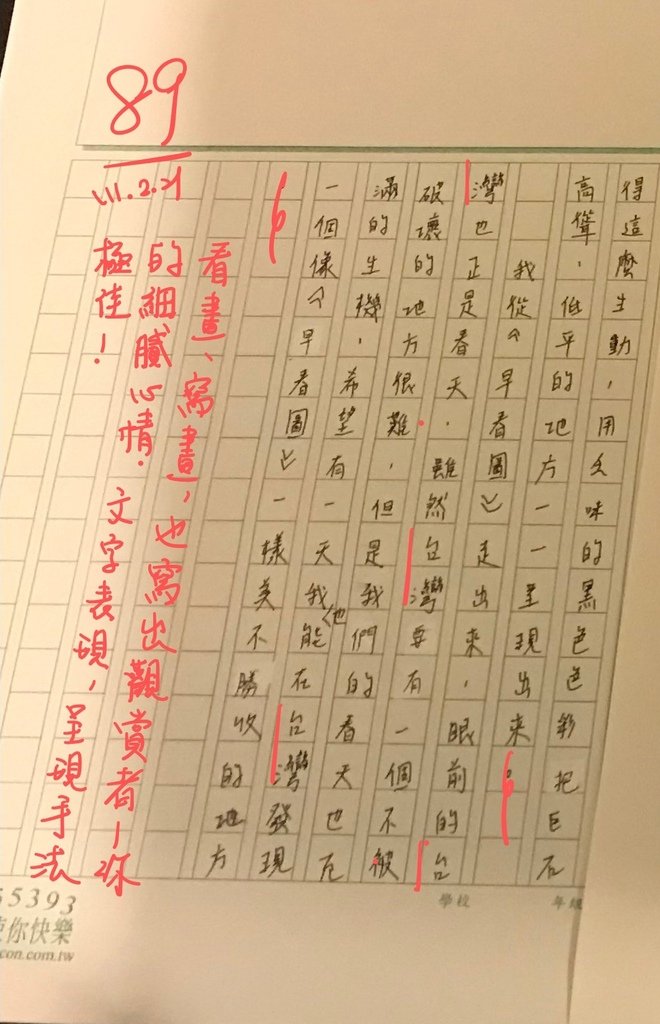 得這麼生動，用乏味的黑色色彩把巨石
高聳，低平的地方一一呈現出來。
我從〈早春圖〉走出來，眼前的台
灣也正是春天，雖然台灣要有一個不被
破壞的地方很難，但是我們的春天也充
滿的生機，希望有一天我也能在台灣發現
一個像〈早春圖〉一樣美不勝收的地方
。
89
111.2.21
看畫、寫畫，也寫出觀賞者—你
的細膩心情。文字表現，呈現手法
極佳！
學校
年級
5393
你快樂
con.com.tw